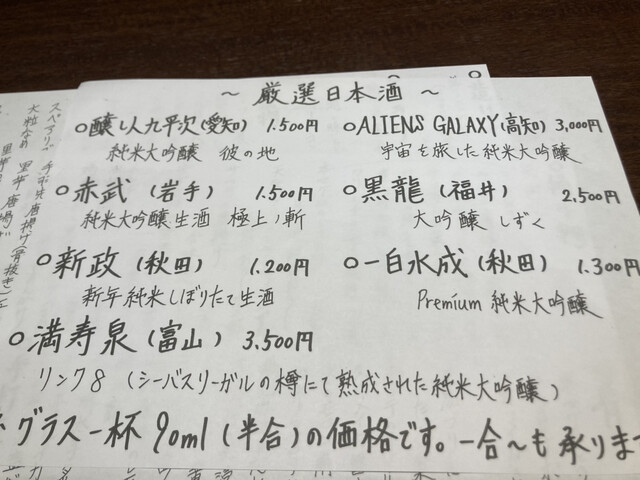 ～ 厳選日本酒 ～
○醸し人九平次(愛知) 1.500円
純米大吟醸 彼の地
○赤武(岩手) 1.500円
純米大吟醸生酒 極上ノ斬
○新政(秋田) 1.200円
新年純米しぼりたて生酒
○満寿泉(富山) 3.500円
リンク8 (シーバスリーガルの樽にて熟成された純米大吟醸)
○ALIENS GALAXY(高知) 3,000円
宇宙を旅した純米大吟醸
○黒龍(福井) 2,500円
大吟醸 しずく
○一白水成(秋田) 1.300円
Premium 純米大吟醸
グラス一杯90ml(半合)の価格です。一合～も承りま